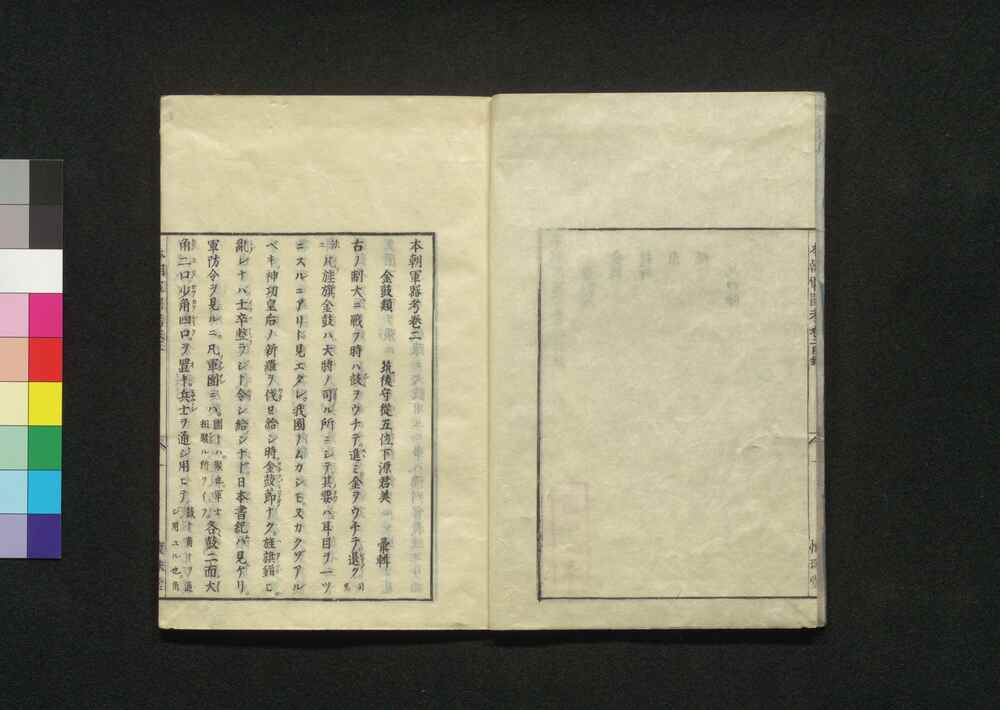 本朝軍器考卷二
金鼓類 筑後守從五位下源君美 彙輯
古ノ制大ニ戰フ時ハ鼓ヲウチテ進ミ金ヲウチテ退ク司馬
ハ旌旗金鼓ハ大將ノ司ル所ニシテ其要ハ耳目ヲ一ツ
ニスルニアリト見エタレ我國ノムカシモ又カクゾアル
ベキ神功皇后ノ新羅ヲ伐セ給シ時金鼓節ナク旌旗錯ヒ
亂レナハ士卒整ラジト令シ給シナド日本書紀ニ見ヘタリ
軍防令ヲ見ルニ凡軍團ニハ 各鼓二面大
角二口少角四口ヲ置キ兵士ヲ通シ用ヒテ